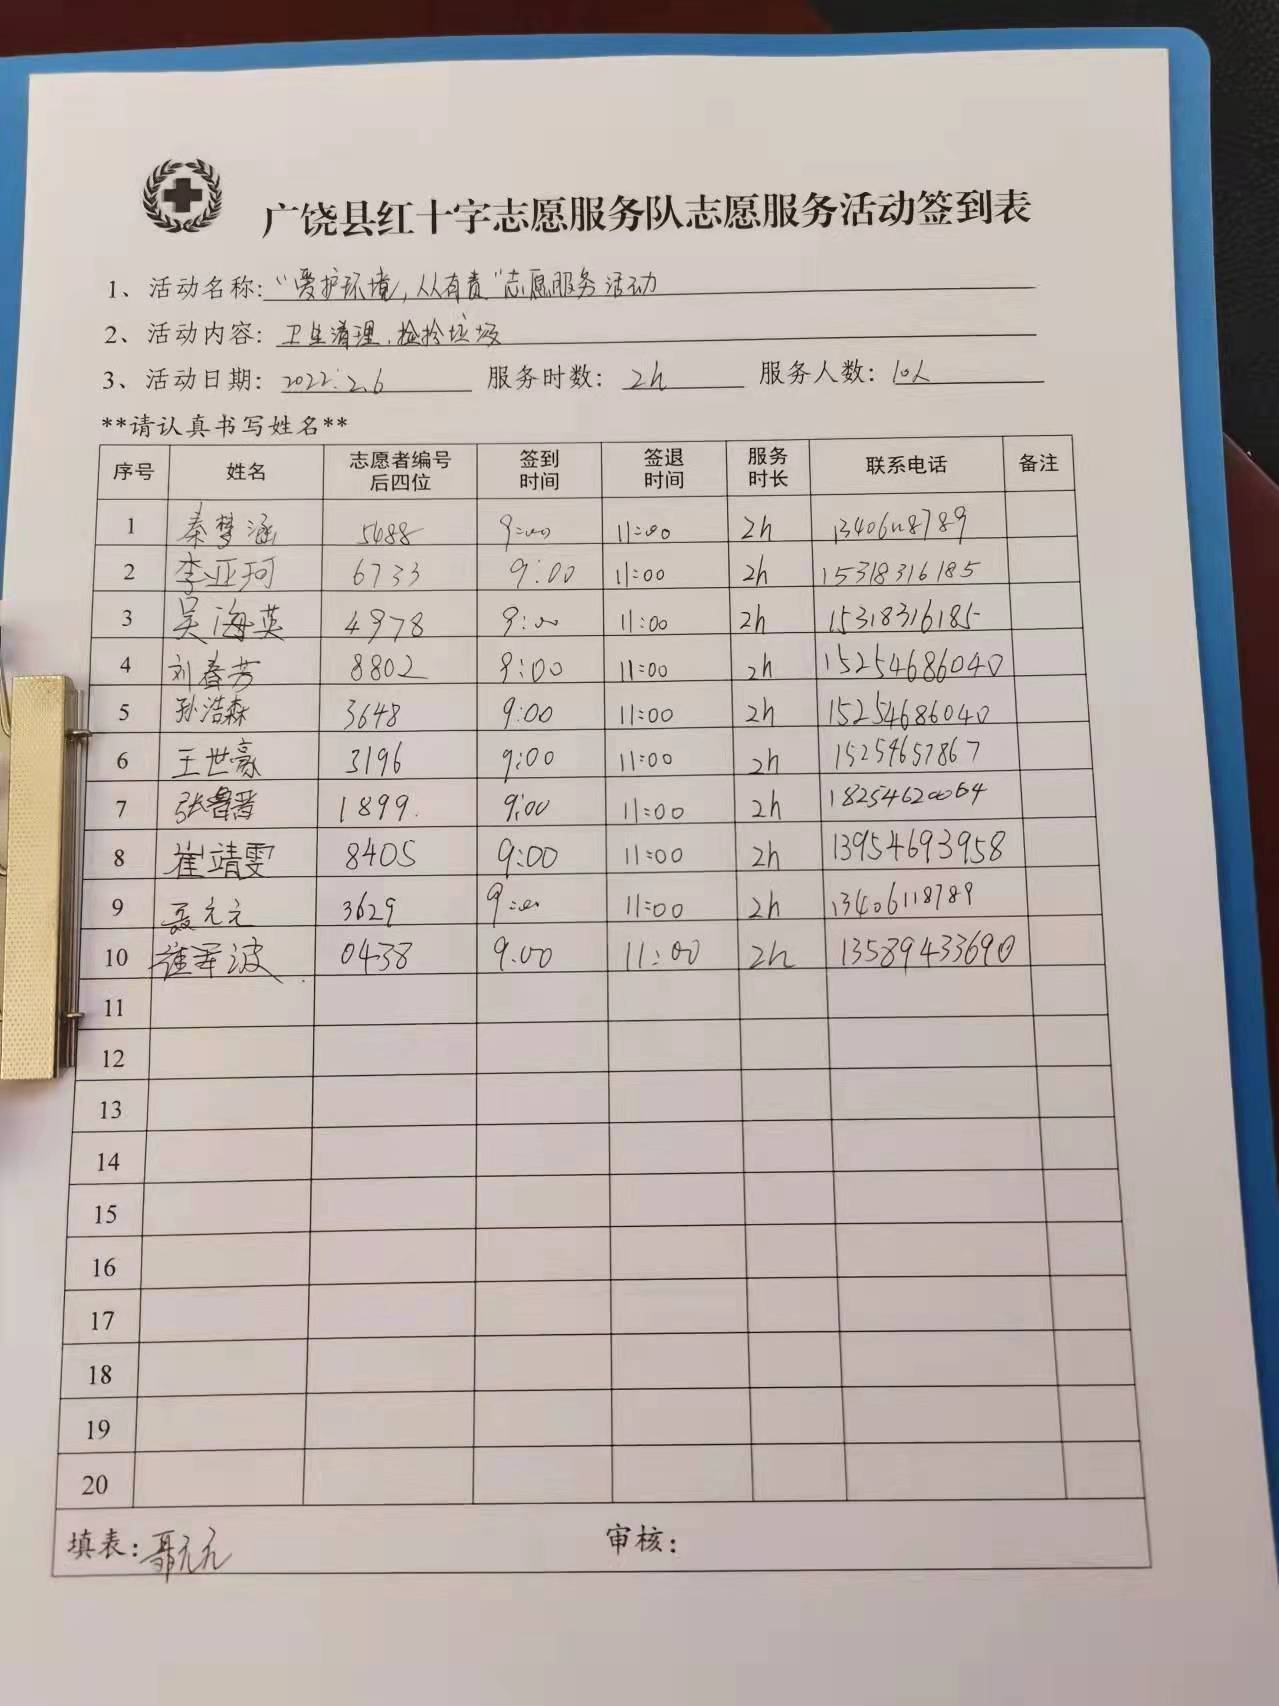 广饶县红十字志愿服务队志愿服务活动签到表
1、活动名称:"爱护环境,人人有责"志愿服务活动
2、活动内容:卫生清理,捡拾垃圾
3、活动日期:2022.2.6 服务时数:2h 服务人数:10人
**请认真书写姓名**
序号 姓名 志愿者编号后四位 签到时间 签退时间 服务时长 联系电话 备注
1 秦梦涵 5688 9:00 11:00 2h 13406118789
2 李亚珂 6733 9:00 11:00 2h 15318316185
3 吴海英 4978 9:00 11:00 2h 15318316185
4 刘春芳 8802 9:00 11:00 2h 15254686040
5 孙浩森 3648 9:00 11:00 2h 15254686040
6 王世豪 3196 9:00 11:00 2h 15254657867
7 张 1899 9:00 11:00 2h 18254620064
8 崔靖雯 8405 9:00 11:00 2h 13954693958
9 聂元元 3629 9:00 11:00 2h 13406118789
10 波 0438 9:00 11:00 2h 13589433690
11
12
13
14
15
16
17
18
19
20
填表:聂元元 审核: